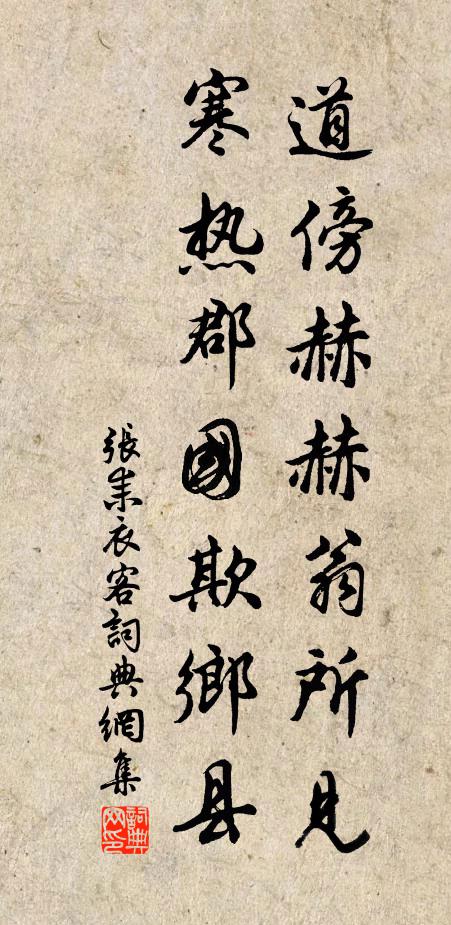 道傍赫赫翁所见
寒热郡國欺鄉县
張耒衣客詞典網集
詞典网印